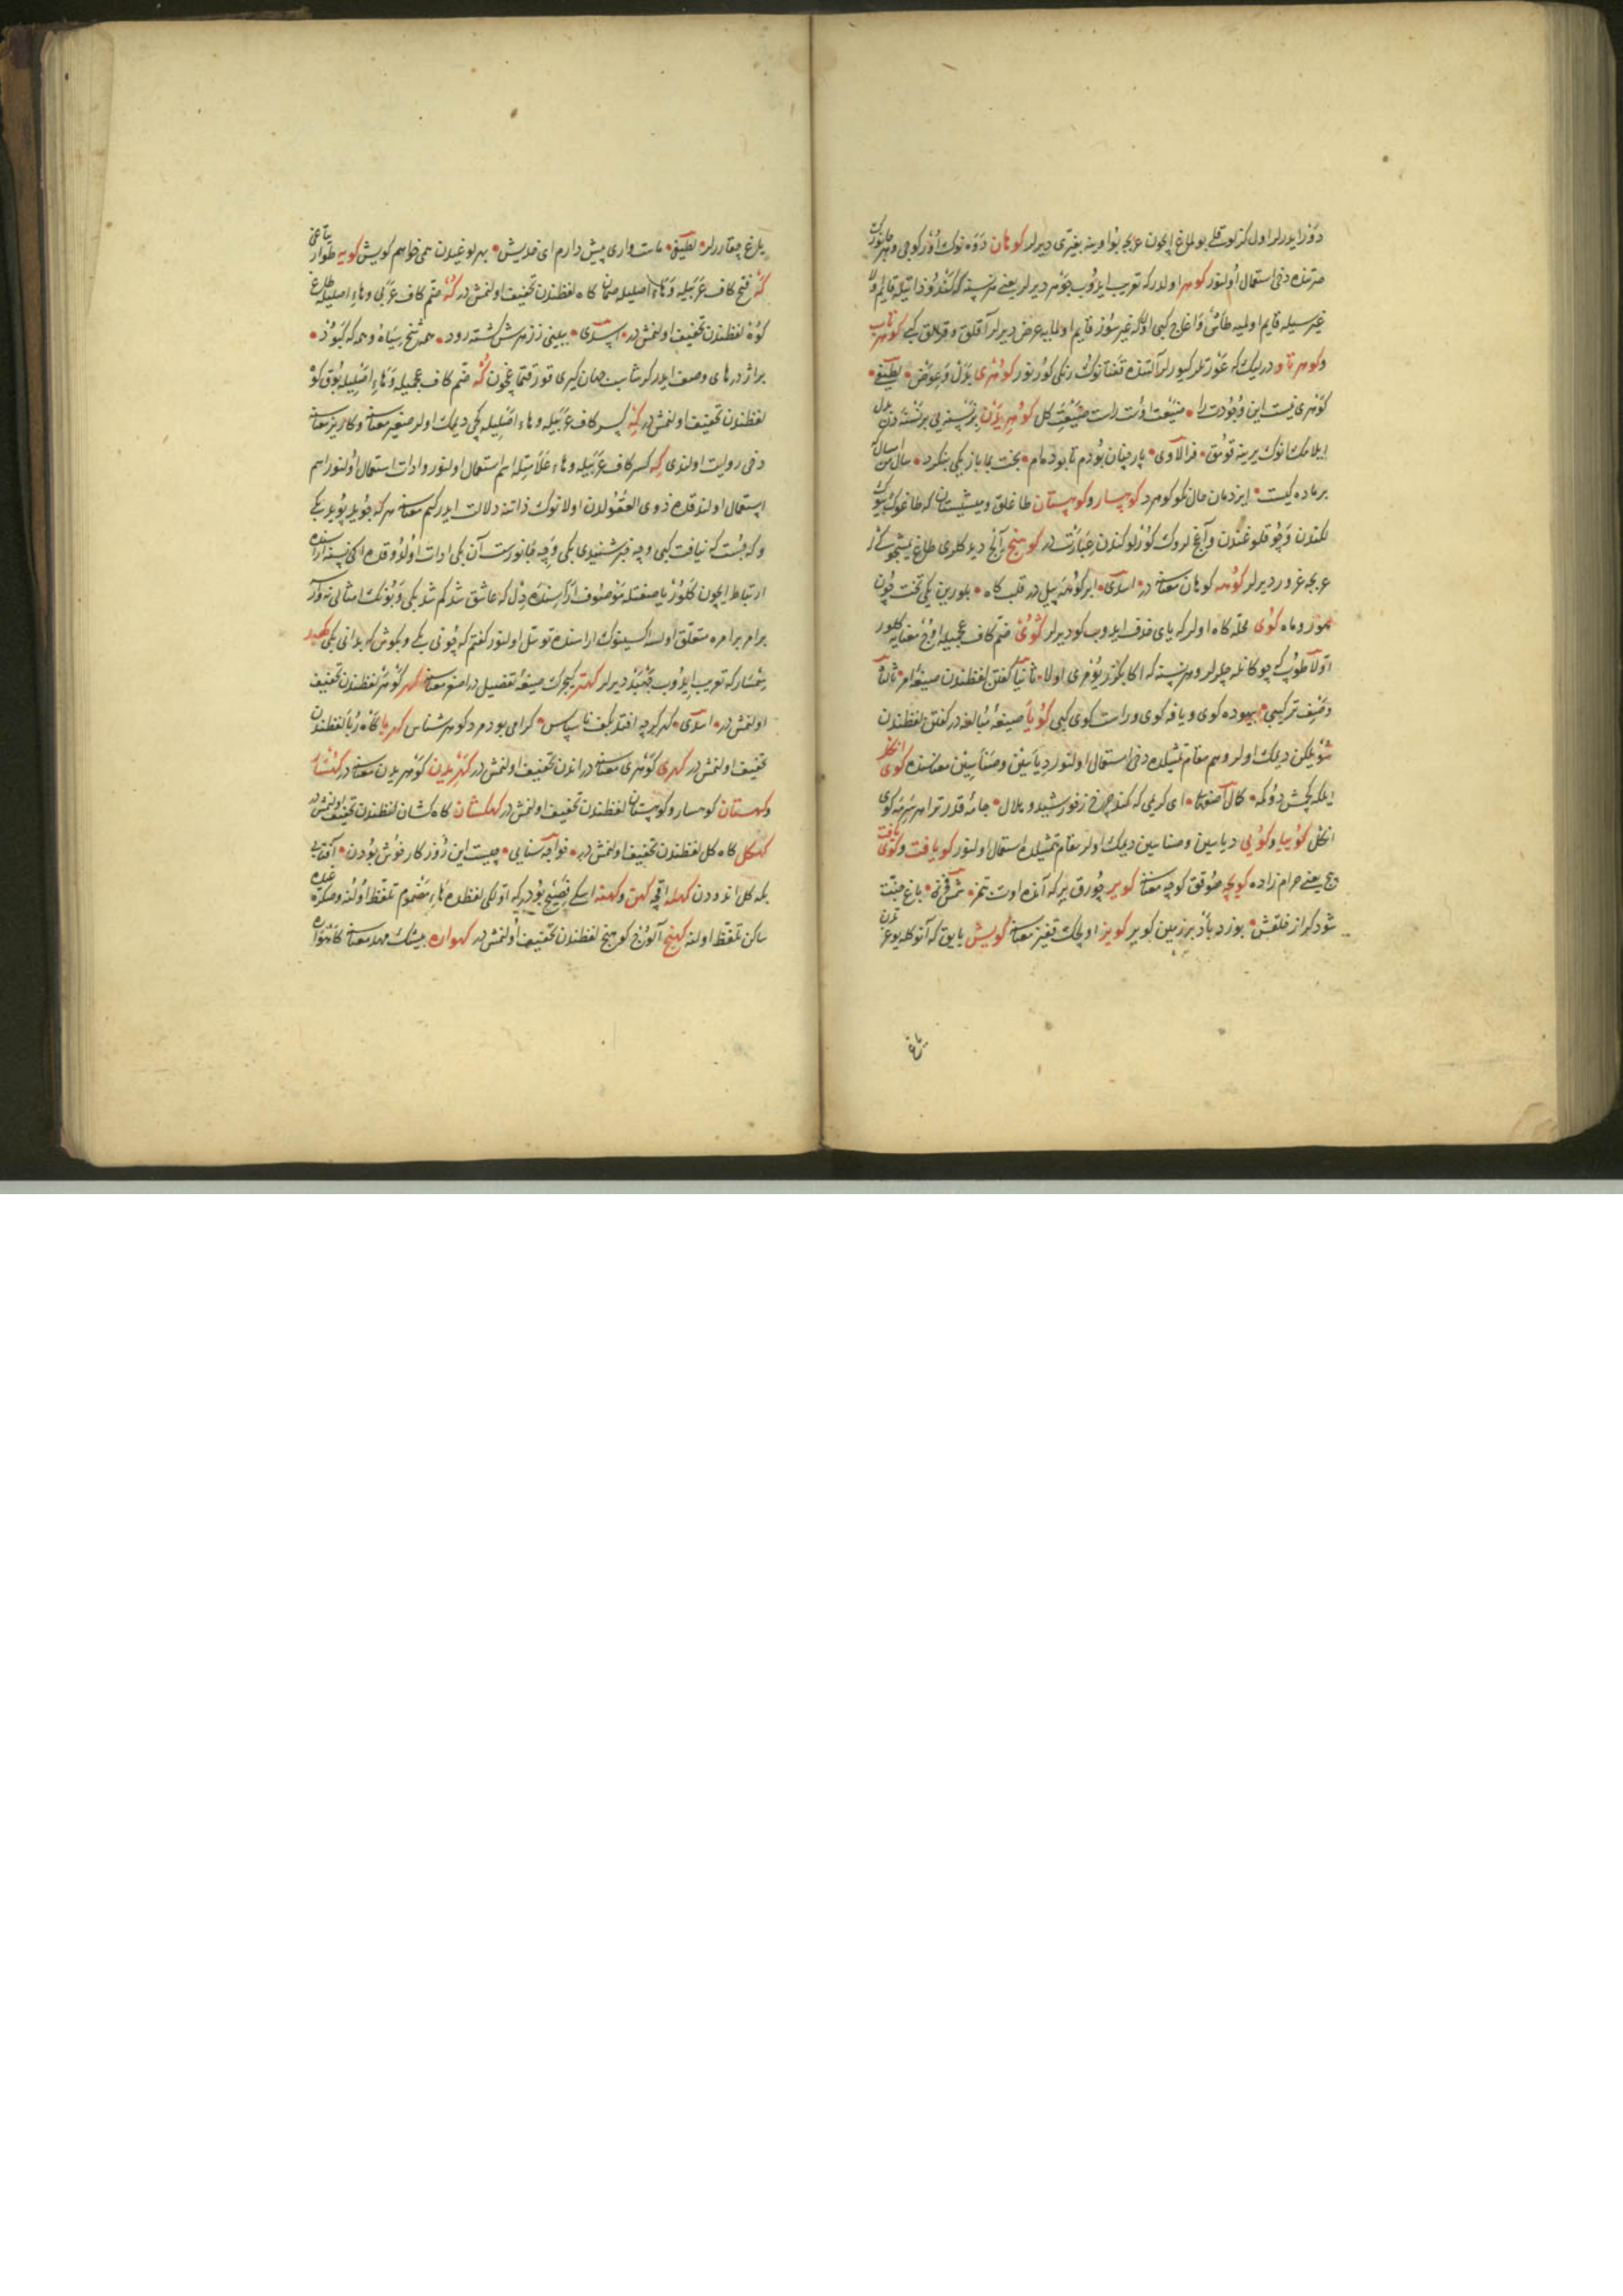 دوز ایدرلر اول کزلو یلغ ایچون عربجه بواوینه بغیتری دیرلر کوهان دوه نوک اوزکوجی و هر جانورک
مرتنده دخی استعمال اولنور کوهر اولدرکه تعریب ایدوب جوهر دیرلر یعنی هر نسنه که کندوز ذاتیله قایم اولا
غیر سیله قایم اولمیه طاش و اغاج کبی اول که غیر سوز قایم اولمایه عرض دیرلر آقلق و قرالق کبی کوهر تاب
وکوهر تاو در لیک که عورتلر کیورلر آلتنده قفتانوک رنکی کورنور کوهری بدل و عوض لطیفی
کوهری نیست این وجودت را صنعت اوست راست صنعت کل کوهریدن بر نسنه یی بر نسنه دن بدل
ایلامک انوک یرینه قومق فرالاوی پار چنان بودم تا بودمام بخت بما باز یکی بنکرد سال من امسال که
بر ماده کیست ایزدمان حال نکو کوهرد کوهسار و کوهستان طاغلق و میشستان که طاغوک بیوک
لکندن و چوقلوغندن و آغ لروک کوزلوکندن عبارت در کوهنج آلج دیدکلری طاغ یمشجوکی
عربجه غرور دیرلر کوهه کوهان معناسنه در اسدی ابر کوهه پیل در قلب کاه بلورین یکی تخت چون
هور و ماه کوی محله کاه اولر که یای حذف ایدوب کو دیرلر کوی ضم کاف عجمیله اوچ معنایه کلور
اولا طوپ که چوکانله چلرلر و هر نسنه که اکا بکزر یومری اولا ثانیا کفتن لفظندن صیغه امر ثالثا
وصف ترکیبی بیهوده کوی و یافه کوی و راست کوی کبی کویا صیغه مبالغه در کفتن لفظندن
سویلکن دیمک اولر و هم مقام تمثیلده دخی استعمال اولنور دیاسین و صناسین معناسنده کوی انکل
ایلکه یچش دوکمه کمال اصفهانی ای کریمی که کند چرخ ز خورشید و هلال جامه قدر ترا هر سر مه کوی
انکل کوییا و کویی دیاسین و صناسین دیمک اولر مقام تمثیلده استعمال اولنور کویافت و کوی یافت
دج یعنی حرام زاده کویچه صوقق کوچه معناسنه کویر چورق یر که آنده اوت بتمز شمس فخری باغ جنت
شود کر از خلقش بوزد باد بر زمین کویر کویز اولچک قفیز معناسنه کویش یایق که آنوکله یوغردن
یاغ
یاغ چقارلر لطیفی ماست واری پیش دارم ای خدیش بهر یوغیدن همی خواهم کویش کویه طوار یتاغی
که فتح کاف عربیله و هاء اصلیله صمان کاه لفظندن تخفیف اولنمش در که ضم کاف عربی و هاء اصلیله طاغ
کوه لفظندن تخفیف اولنمش در اسدی ببینی ز زهرش کشته رود همه شخ سیاه و همه که کبود
براژدرهای وصف ایدر کرشاسب جهان کیری قورقتماغچون که ضم کاف عجمیله و هاء اصلیله بوق کو
لفظندن تخفیف اولنمش در که کسر کاف عربیله و هاء اصلیله کچی دیمک اولر صغیر معناسنه و کاریز معناسنه
دخی روایت اولندی که کسر کاف عربیله و هاء علامتیله اسم استعمال اولنور و ادات استعمال اولنور اسم
استعمال اولندقده ذوی العقولدن اولانوک ذاتنه دلالت ایدر کیم معناسنه هر که جوید یابد کبی
و که جست که نیافت کبی و چه خبر شنیدی کبی و چه جانورست آن کبی ادات اولدوقده اکی نسنه اراسنده
ارتباط ایچون کلور یا صفتله موصوف اراسنده دل که عاشق شد کم شد کبی و بونک امثالی نه وار
برامر برامره متعلق اولسه اکیسینوک اراسنده توسل اولنور کفتم که چونی کبی و بکوش که بدانی کبی کهبد
ینمسار که تعریب ایدوب جهبذ دیرلر کهتر کیجرک صیغه تفضیل در اصغر معناسنه کهر کوهر لفظندن تخفیف
اولنمش در اسدی کهر کرچه افتد بکف ناسپاس کرامی بود مرد کوهر شناس کهربا کاه ربا لفظندن
تخفیف اولنمش در کهری کوهری معناسنه در اندن تخفیف اولنمش در کهریدن کوهریدن معناسنه در کهسار
وکهستان کوهسار و کوهستان لفظندن تخفیف اولنمش در کهکشان کاه کشان لفظندن تخفیف اولنمش در
کهکل کاه کل لفظندن تخفیف اولنمش در خواجه سنایی چیست این روز کار خوش بودن آفتابی
بکه کل اندودن کهله اقچه کهن و کهنه اسکی فصیح بودرکه اولکی لفظده هاء مضموم تلفظ اولنه و صکره غیده
ساکن تلفظ اولنه کهنج آلوج کوهنج لفظندن تخفیف اولنمش در کهواره بیشک مهد معناسنه کاهواره